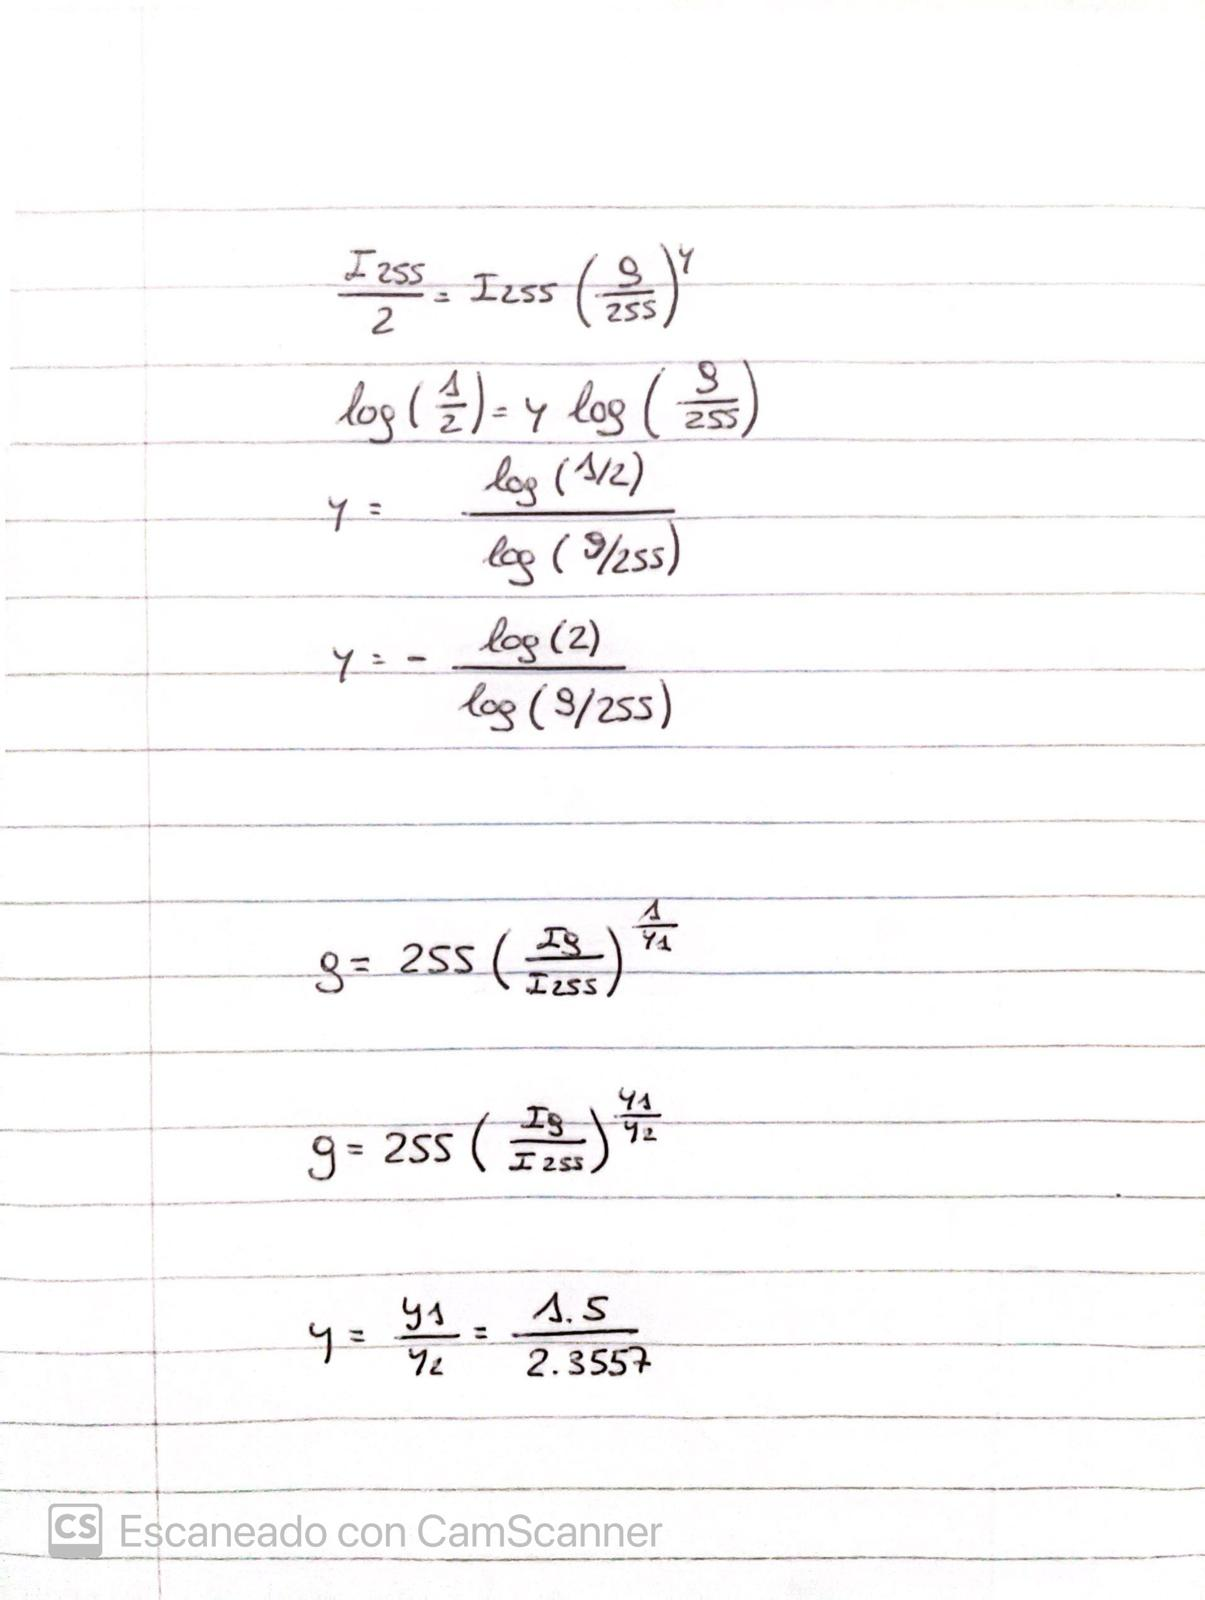 I255/2 = I255 (g/255)^γ
log(1/2) = γ log(g/255)
γ = log(1/2) / log(g/255)
γ = - log(2) / log(g/255)
g = 255 (Ig/I255)^(1/γ1)
g = 255 (Ig/I255)^(γ1/γ2)
γ = γ1/γ2 = 1.5/2.3557
CS Escaneado con CamScanner